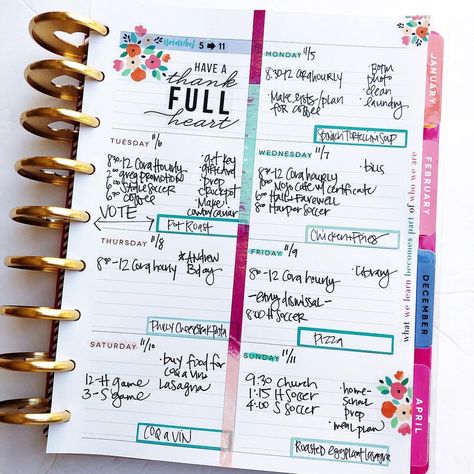 november 5 → 11
HAVE A
thank
FULL
heart
MONDAY 11/5
8:30-12 Cora hourly
· Make lists/plan
for coffee
· Born
photo
· clean
· laundry
Spinach Tortellini Soup
TUESDAY 11/6
8:30-12 Cora Hourly
2:00 greg promotion
6:00 S soccer
6:00 coffee
VOTE
· get key
prep
· Make
cowboy caviar
Pot Roast
WEDNESDAY 11/7
8:00-12 Cora Hourly
6:00 Hall Farewell
8:00 Harper Soccer
· bills
Chicken + Fries
THURSDAY 11/8
8:00-12 Cora hourly
*Andrew
Bday
Philly Cheesesteak Pasta
FRIDAY 11/9
8:00-12 Cora hourly
-early dismissal-
8:00 H Soccer
· Library
Pizza
SATURDAY 11/10
· buy food for
coq a vin
lasagna
12-H game
3-S game
COQ a VIN
SUNDAY 11/11
9:30 Church
1:15 H Soccer
4:00 S Soccer
· home-
school
prep
· meal plan
Roasted eggplant lasagna
JANUARY
FEBRUARY
DECEMBER
APRIL
what we learn becomes part of who we are